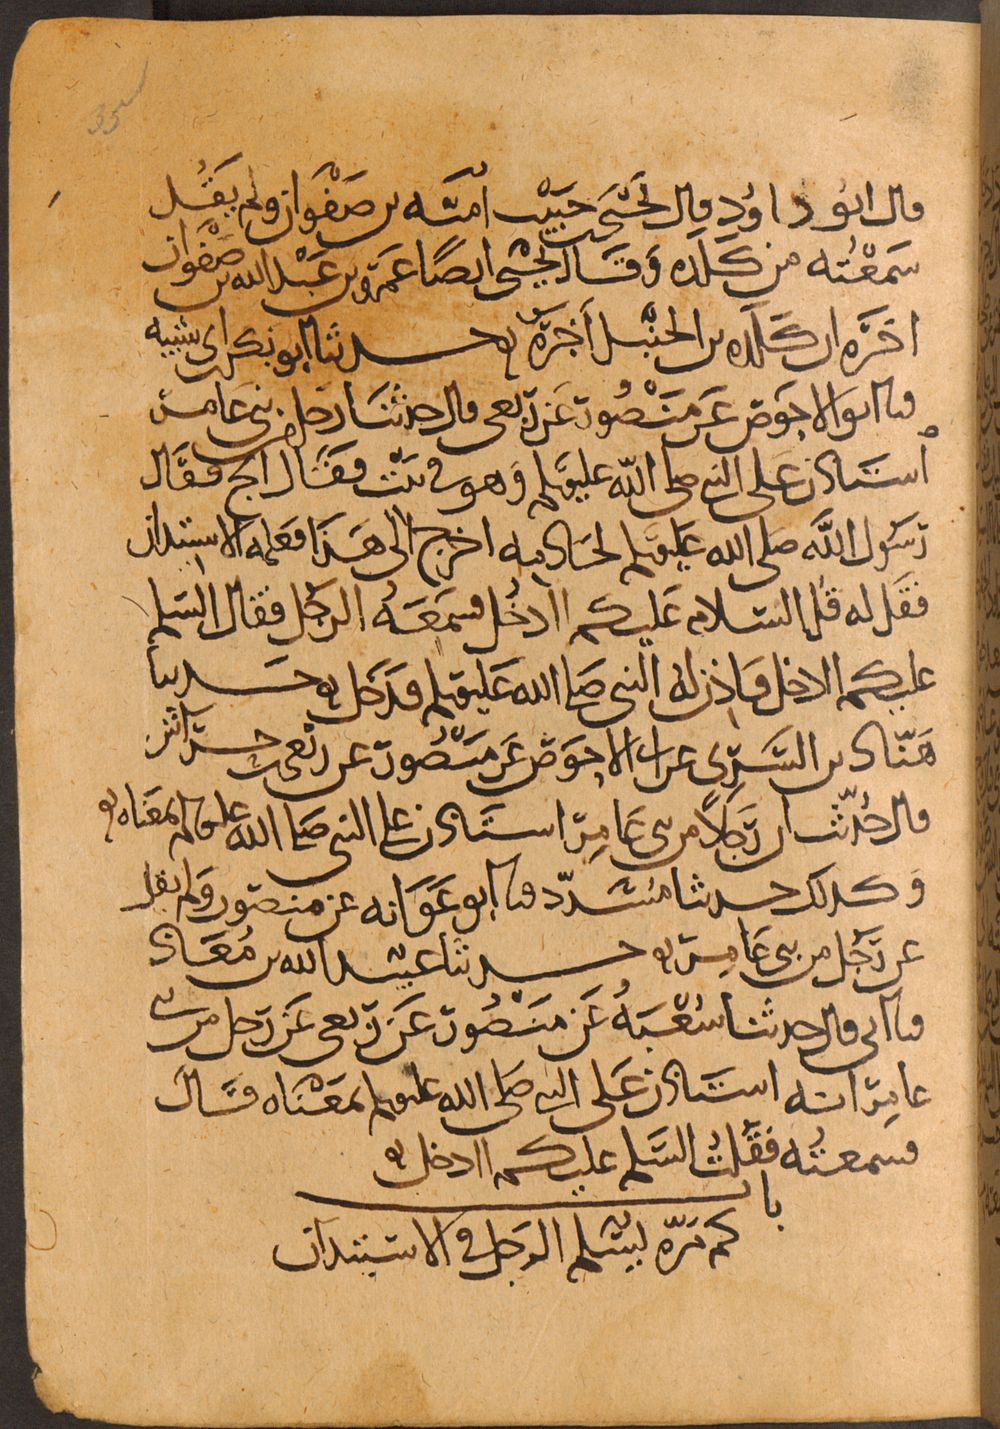 قال ابو داود قال يحيى حبيب اميه بن صفوان ولم يقل
سمعته من كلده وقال يحيى ايضا عمرو بن عبد الله بن صفوان
اخبره ان كلده بن الحنبل اخبره حدثنا ابو بكر بن ابي شيبه
قال ابو الاحوص عن منصور عن ربعي قال حدثنا رجل من بني عامر
استاذن على النبي صلى الله عليه وسلم وهو في بيت فقال الج فقال
رسول الله صلى الله عليه وسلم لخادمه اخرج الى هذا فعلمه الاستيذان
فقل له قل السلام عليكم اادخل فسمعه الرجل فقال السلم
عليكم اادخل فاذن له النبي صلى الله عليه وسلم فدخل حدثنا
هناد بن السري عن ابي الاحوص عن منصور عن ربعي بن حراش
قال حدثت ان رجلا من بني عامر استاذن على النبي صلى الله عليه وسلم بمعناه
وكذلك حدثنا مسدد قال ابو عوانه عن منصور ولم يقل
عن رجل من بني عامر حدثنا عبيد الله بن معاذ
قال ابي قال حدثنا شعبة عن منصور عن ربعي عن رجل من بني
عامر انه استاذن على النبي صلى الله عليه وسلم بمعناه قال
فسمعته فقلت السلم عليكم اادخل
باب
كم مره يسلم الرجل في الاستيذان